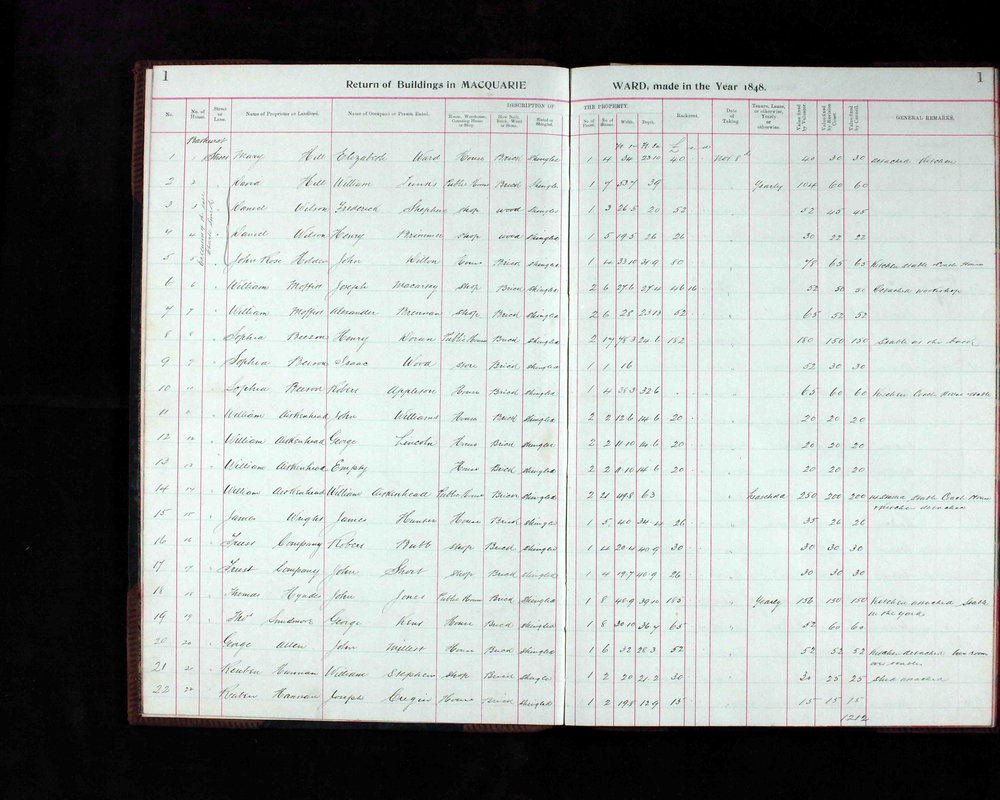 1
Return of Buildings in MACQUARIE WARD, made in the Year 1848.
1
No. No. of House. Street or Lane. Name of Proprietor or Landlord. Name of Occupant or Person Rated. DESCRIPTION OF THE PROPERTY. House, Warehouse, Counting House or Shop. How Built, Brick, Wood or Stone. Slated or Shingled. No. of Floors. No. of Rooms. Width. Depth. Rackrent. Date of Taking. Tenure, Lease, or otherwise, Yearly or otherwise. Value fixed by Valuator. Value fixed by Revision Court. Value fixed by Council. GENERAL REMARKS.
Bathurst
£ s d
1 Street Mary Hill Elizabeth Ward House Brick Shingled 1 4 34 23·10 40 Nov 8th 40 30 30 detached Kitchen
2 David Hill William Public House Brick Shingle 1 7 53·7 39 Yearly 104 60 60
3 Daniel Wilson Frederick shop wood shingled 1 3 26·5 20 52 52 45 45
4 Daniel Wilson Henry Brimmer shop wood shingled 1 5 19·5 26 26 30 22 22
5 John Rose Holden John Wilton House Brick shingled 1 4 33·10 80 78 65 65 Kitchen Stable Coach House
6 6 William Moffitt Joseph shop Brick shingled 2 6 27·6 27·4 46 16 52 50 50 Detached workshop
7 7 William Moffitt Alexander Brennan shop Brick shingled 2 6 28 52 65 52 52
8 8 Sophia Beeson Henry Doran Public House Brick shingled 2 17 78·3 24·6 182 180 150 150 Stable at the back
9 9 Sophia Beeson Isaac Wood store Brick shingled 1 1 16 52 30 30
10 10 Sophia Beeson Robert Appleton House Brick shingled 1 4 38·3 32·6 65 60 60 Kitchen Coach House Stable
11 11 William Aitkenhead John Williams House Brick shingled 2 2 12·6 14·6 20 20 20 20
12 12 William Aitkenhead George Lincoln House Brick shingled 2 2 11·10 14·6 20 20 20 20
13 13 William Aitkenhead Empty House Brick shingled 2 2 11·10 14·6 20 20 20 20
14 14 William Aitkenhead William Aitkenhead Public House Brick shingled 2 21 49·8 63 Leasehold 250 200 200 Stable Coach House
Kitchen detached
15 15 James Wright James Hunter House Brick shingled 1 5 40 34·4 26 35 26 26
16 16 Trust Company Robert Bubb shop Brick shingled 1 4 20·4 40·9 30 30 30 30
17 17 Trust Company John Short shop Brick shingled 1 4 19·7 40·9 26 30 30 30
18 18 Thomas Hyndes John Jones Public House Brick shingled 1 8 48·9 39·10 185 Yearly 156 150 150 Kitchen attached Stable
in the yard
19 19 Thos Smidmore George Kent House Brick shingled 1 8 30·10 36·4 65 52 60 60
20 20 George Allen John House Brick shingled 1 6 32 28·3 52 52 52 52 Kitchen detached
over stable
21 21 Reuben Hannan William Stephen shop Brick shingled 1 2 20 21·2 30 30 25 25 Shed attached
22 22 Reuben Hannan Joseph Cregin House Brick shingled 1 2 19·8 12·9 15 15 15 15
1212